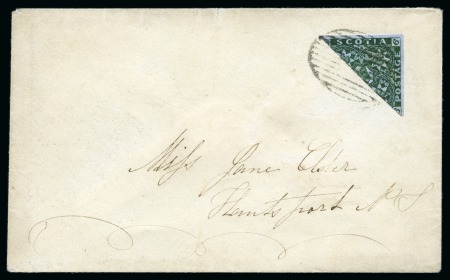 SCOTIA
POSTAGE
Miss Jane Elder
Hantsport N S